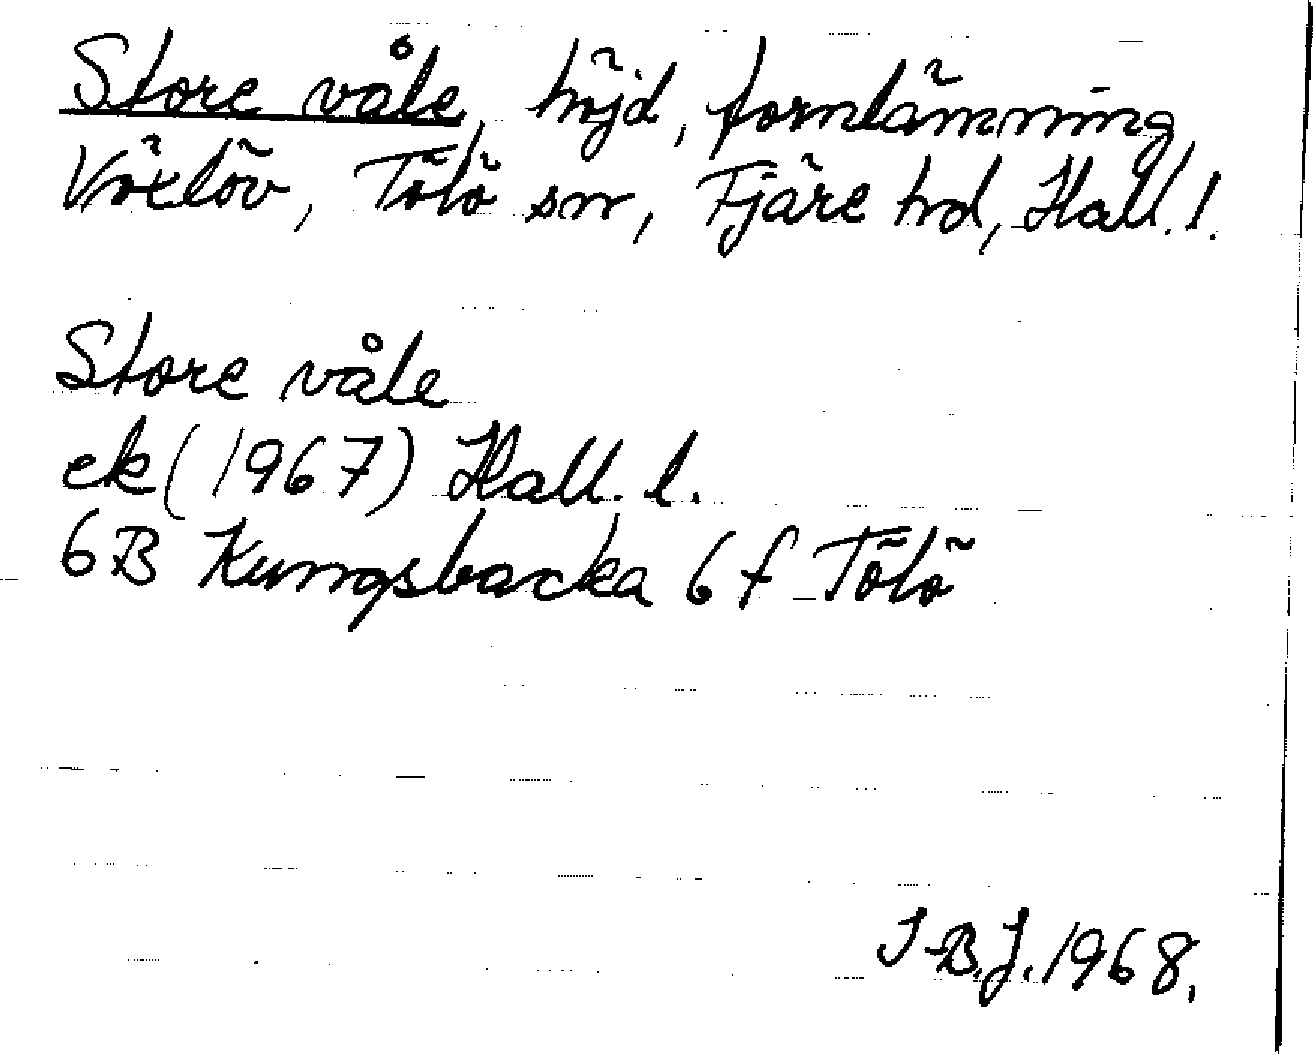 Store våle, höjd, fornlämning
Växlöv, Tölö sn, Fjäre hd, Hall. l.
Store våle
ek (1967) Hall. l.
6B Kungsbacka 6 f Tölö
I-B.J. 1968.